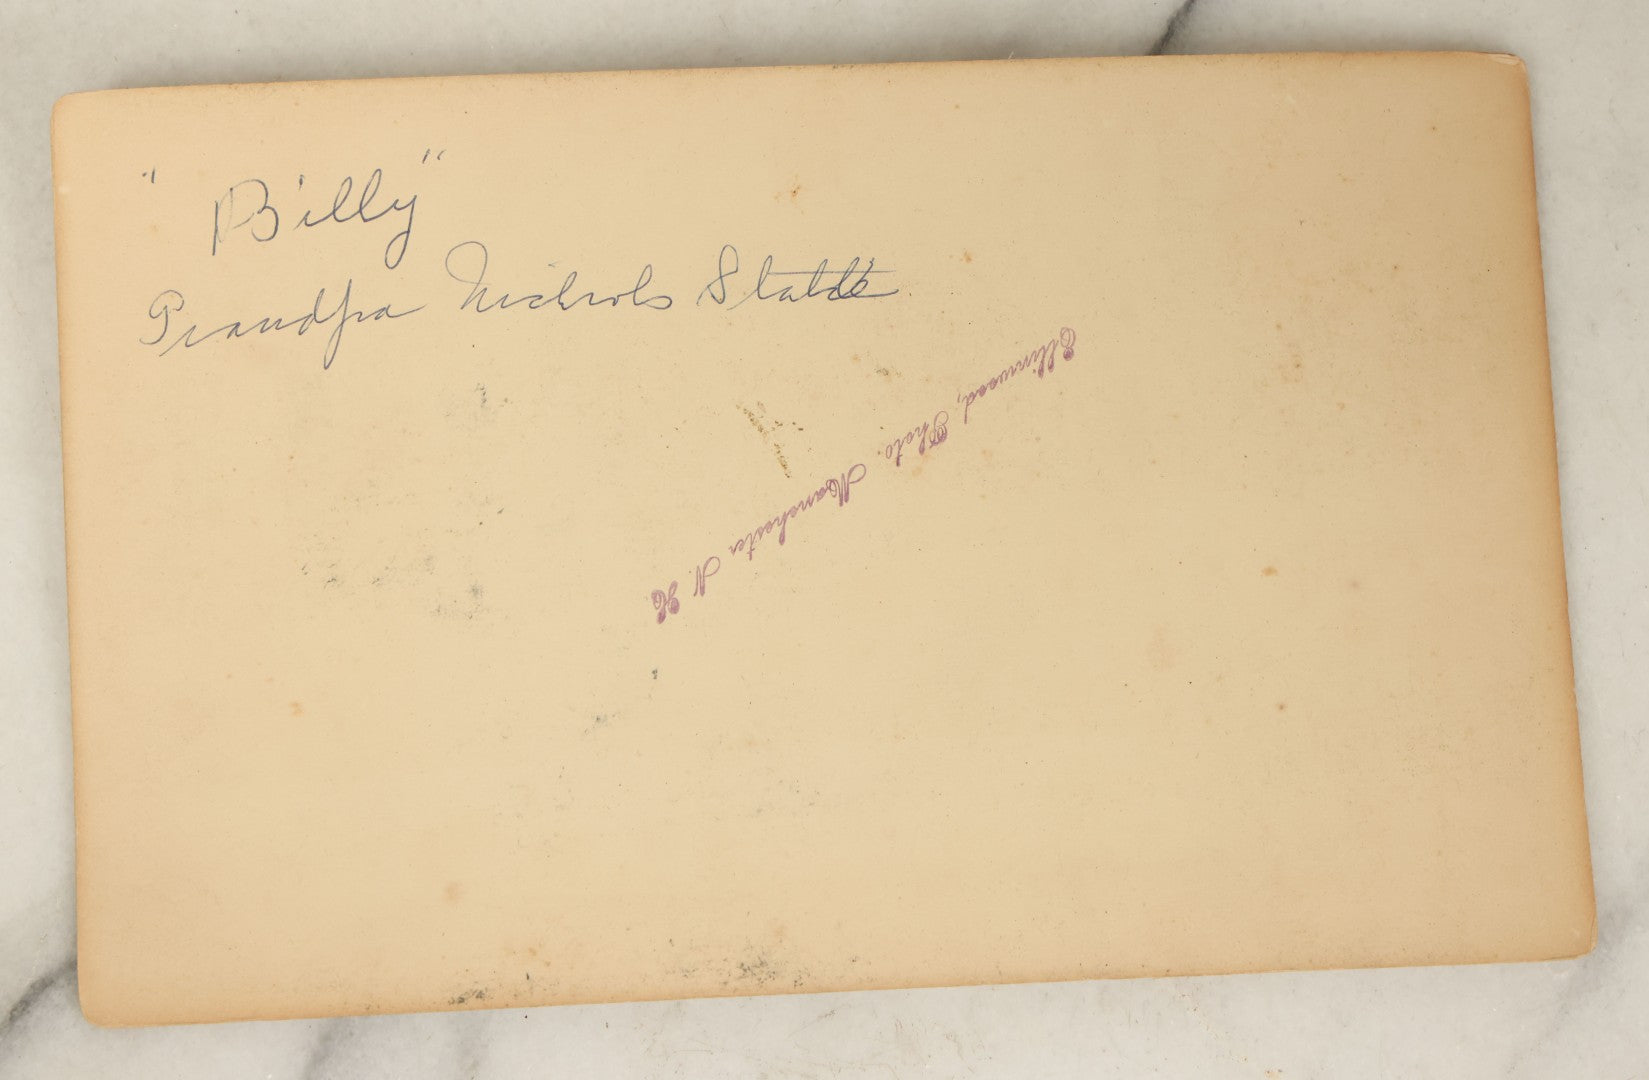 "Billy"
Grandpa Nichols
Ellinwood, Photo. Manchester N. H.